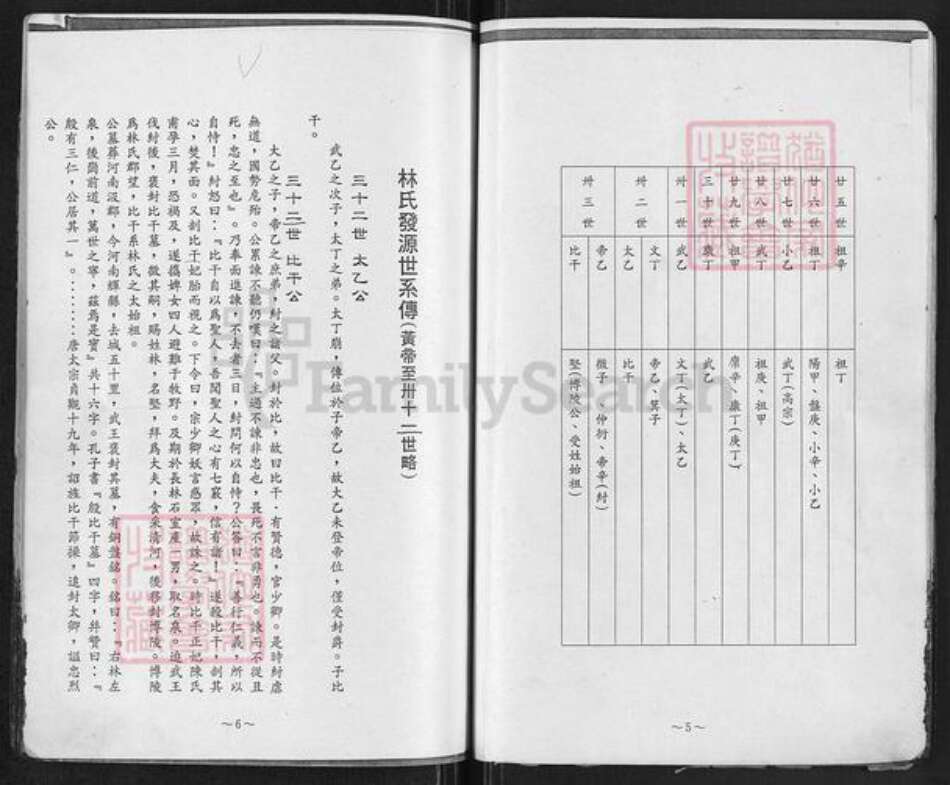 廿五世 祖辛 祖丁
廿六世 祖丁 陽甲、盤庚、小辛、小乙
廿七世 小乙 武丁(高宗)
廿八世 武丁 祖庚、祖甲
廿九世 祖甲 廩辛、康丁(庚丁)
三十世 康丁 武乙
卅一世 武乙 文丁(太丁)、太乙
卅二世 文丁 帝乙、箕子
太乙 比干
卅三世 帝乙 微子、仲衍、帝辛(紂)
比干 堅(博陵公、受姓始祖)
~5~
林氏發源世系傳(黃帝至卅十二世略)
三十二世 太乙公
武乙之次子,太丁之弟。太丁崩,傳位於子帝乙,故大乙未登帝位,僅受封爵。子比
干。
三十三世 比干公
大乙之子,帝乙之庶弟,紂之諸父。封於比,故曰比干。有賢德,官少卿。是時紂虐
無道,國勢危殆。公累諫不聽仍嘆曰:『主過不諫非忠也,畏死不言非勇也。諫而不從且
死,忠之至也』。乃奉面進諫,不去者三日,紂問何以自恃?公答曰:『善行仁義,所以
自恃!』紂怒曰:『比干自以為聖人,吾聞聖人之心有七竅,信有諸!』遂殺比干,剖其
心,焚其面。又剖比干妃胎而視之。下令曰,宗少卿妖言惑眾,故誅之。時比干正妃陳氏
甫孕三月,恐禍及,遂攜婢女四人避難于牧野。及期於長林石室產一男,取名泉。迨武王
伐紂後,褒封比干墓,徵其嗣,賜姓林,名堅,拜為大夫,食采清河,後移封博陵。博陵
為林氏郡望,比干系林氏之太始祖。
公墓葬河南汲郡,今河南輝縣,去城五十里,武王褒封其墓,有銅盤銘。銘曰:『右林左
泉,後崗前道,萬世之寧,茲焉是寶』共十六字。孔子書『殷比干墓』四字,并贊曰:『
殷有三仁,公居其一』。……唐太宗貞觀十九年,詔旌比干節操,追封太卿,謚忠烈
公。
~6~
FamilySearch